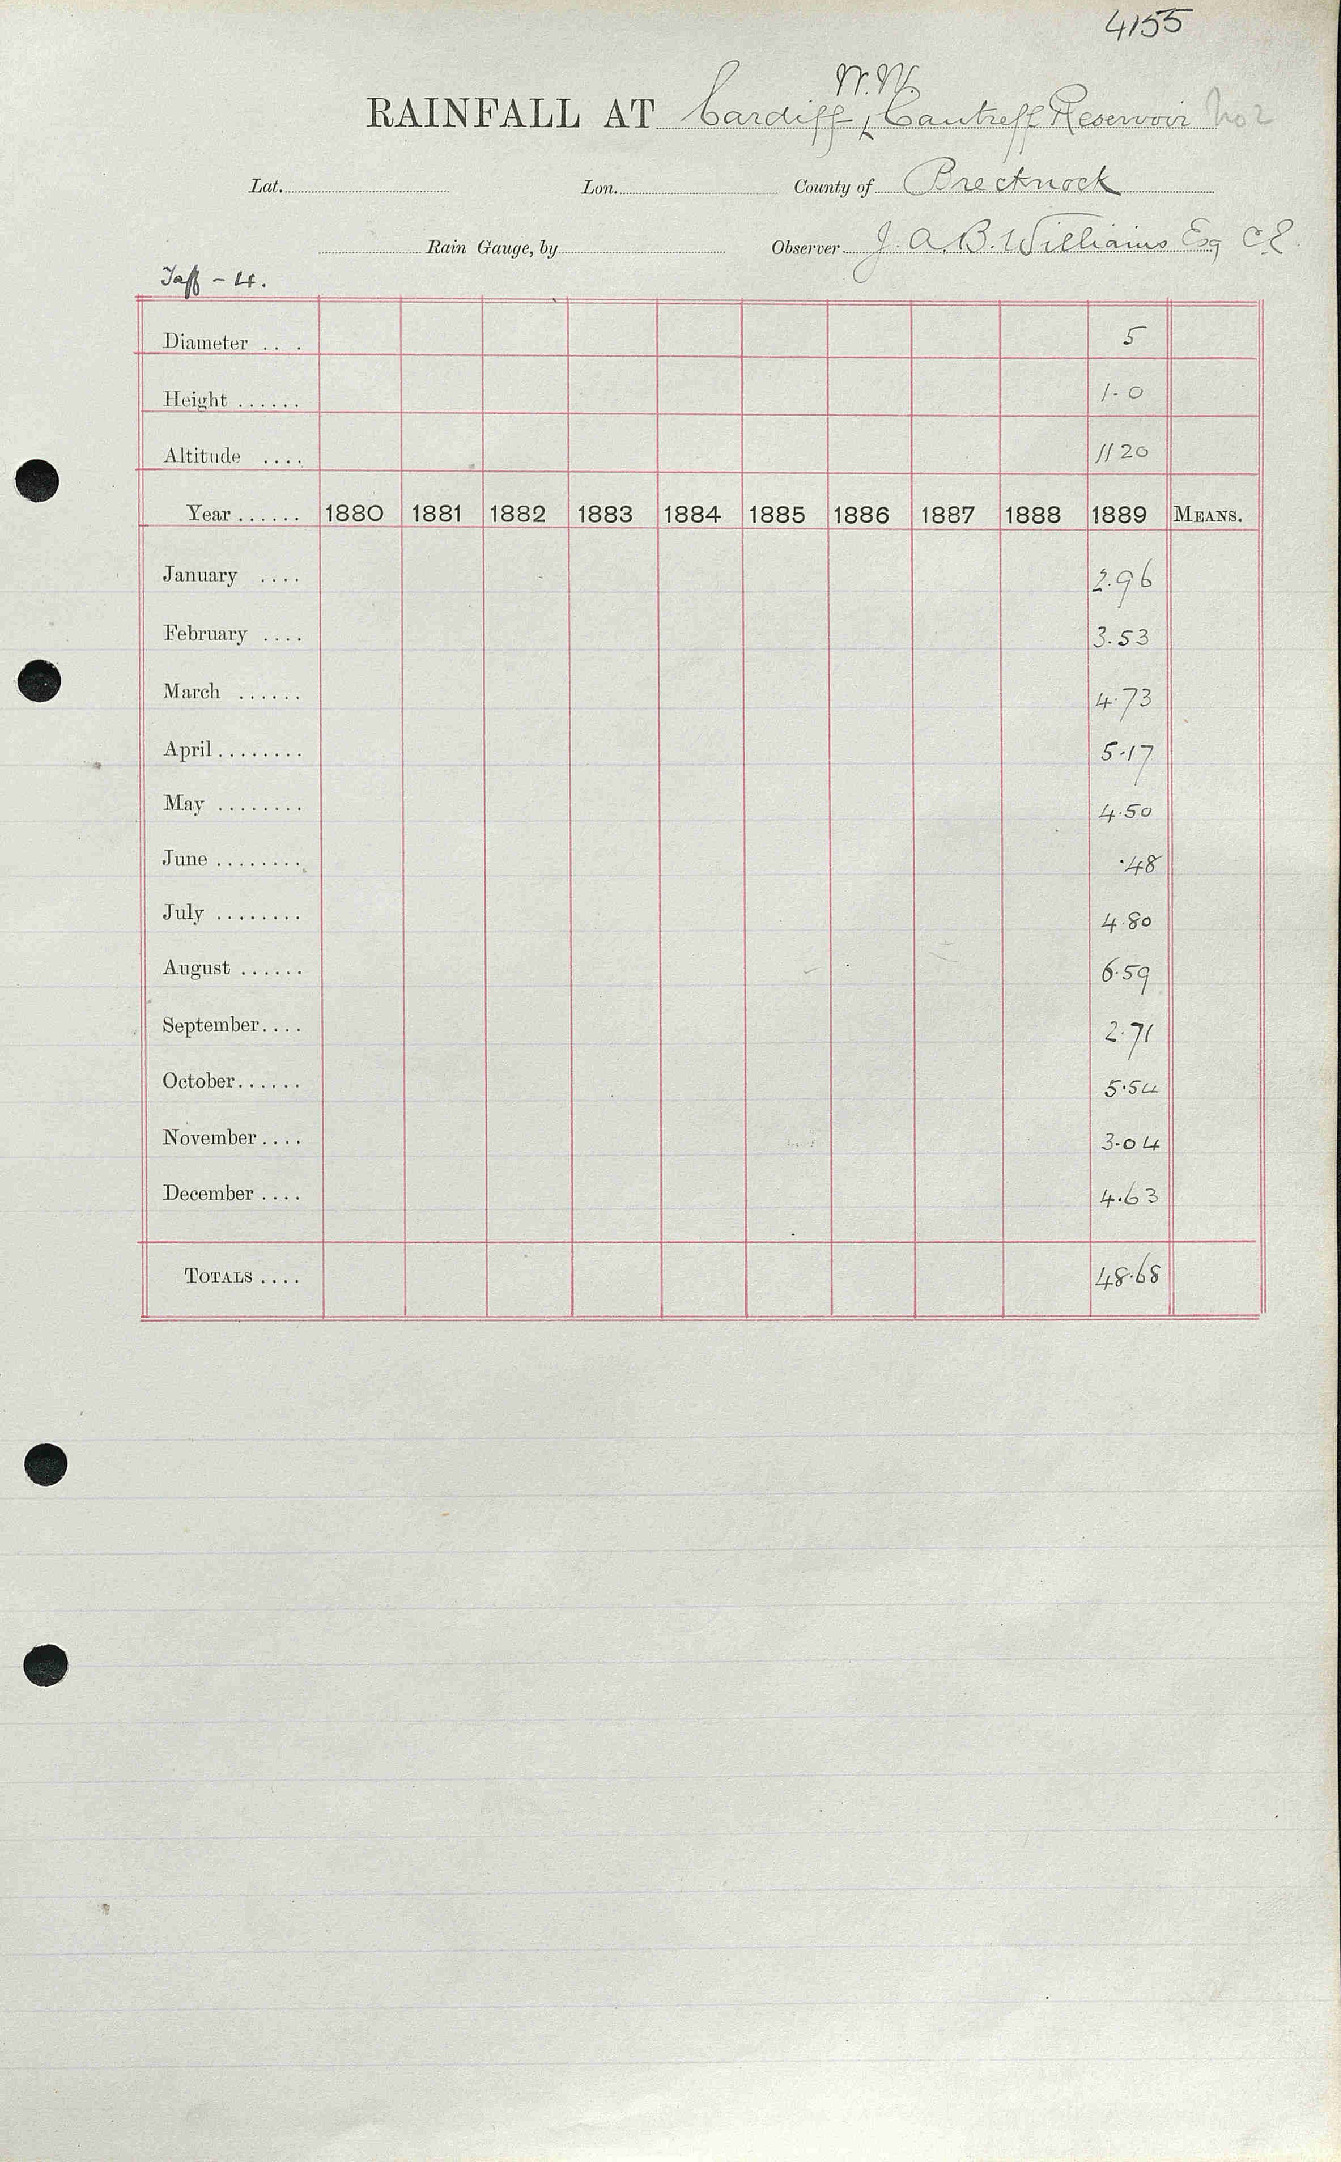 4155
W.W.
RAINFALL AT Cardiff, Cantreff Reservoir No 2
Lat. Lon. County of Brecknock
Rain Gauge, by Observer J. A. B. Williams Esq C.E.
Taff - 4.
Diameter ... 5
Height ...... 1.0
Altitude .... 1120
Year ...... 1880 1881 1882 1883 1884 1885 1886 1887 1888 1889 MEANS.
January .... 2.96
February .... 3.53
March ...... 4.73
April ........ 5.17
May ........ 4.50
June ........ .48
July ........ 4.80
August ...... 6.59
September .... 2.71
October ...... 5.54
November .... 3.04
December .... 4.63
TOTALS .... 48.68